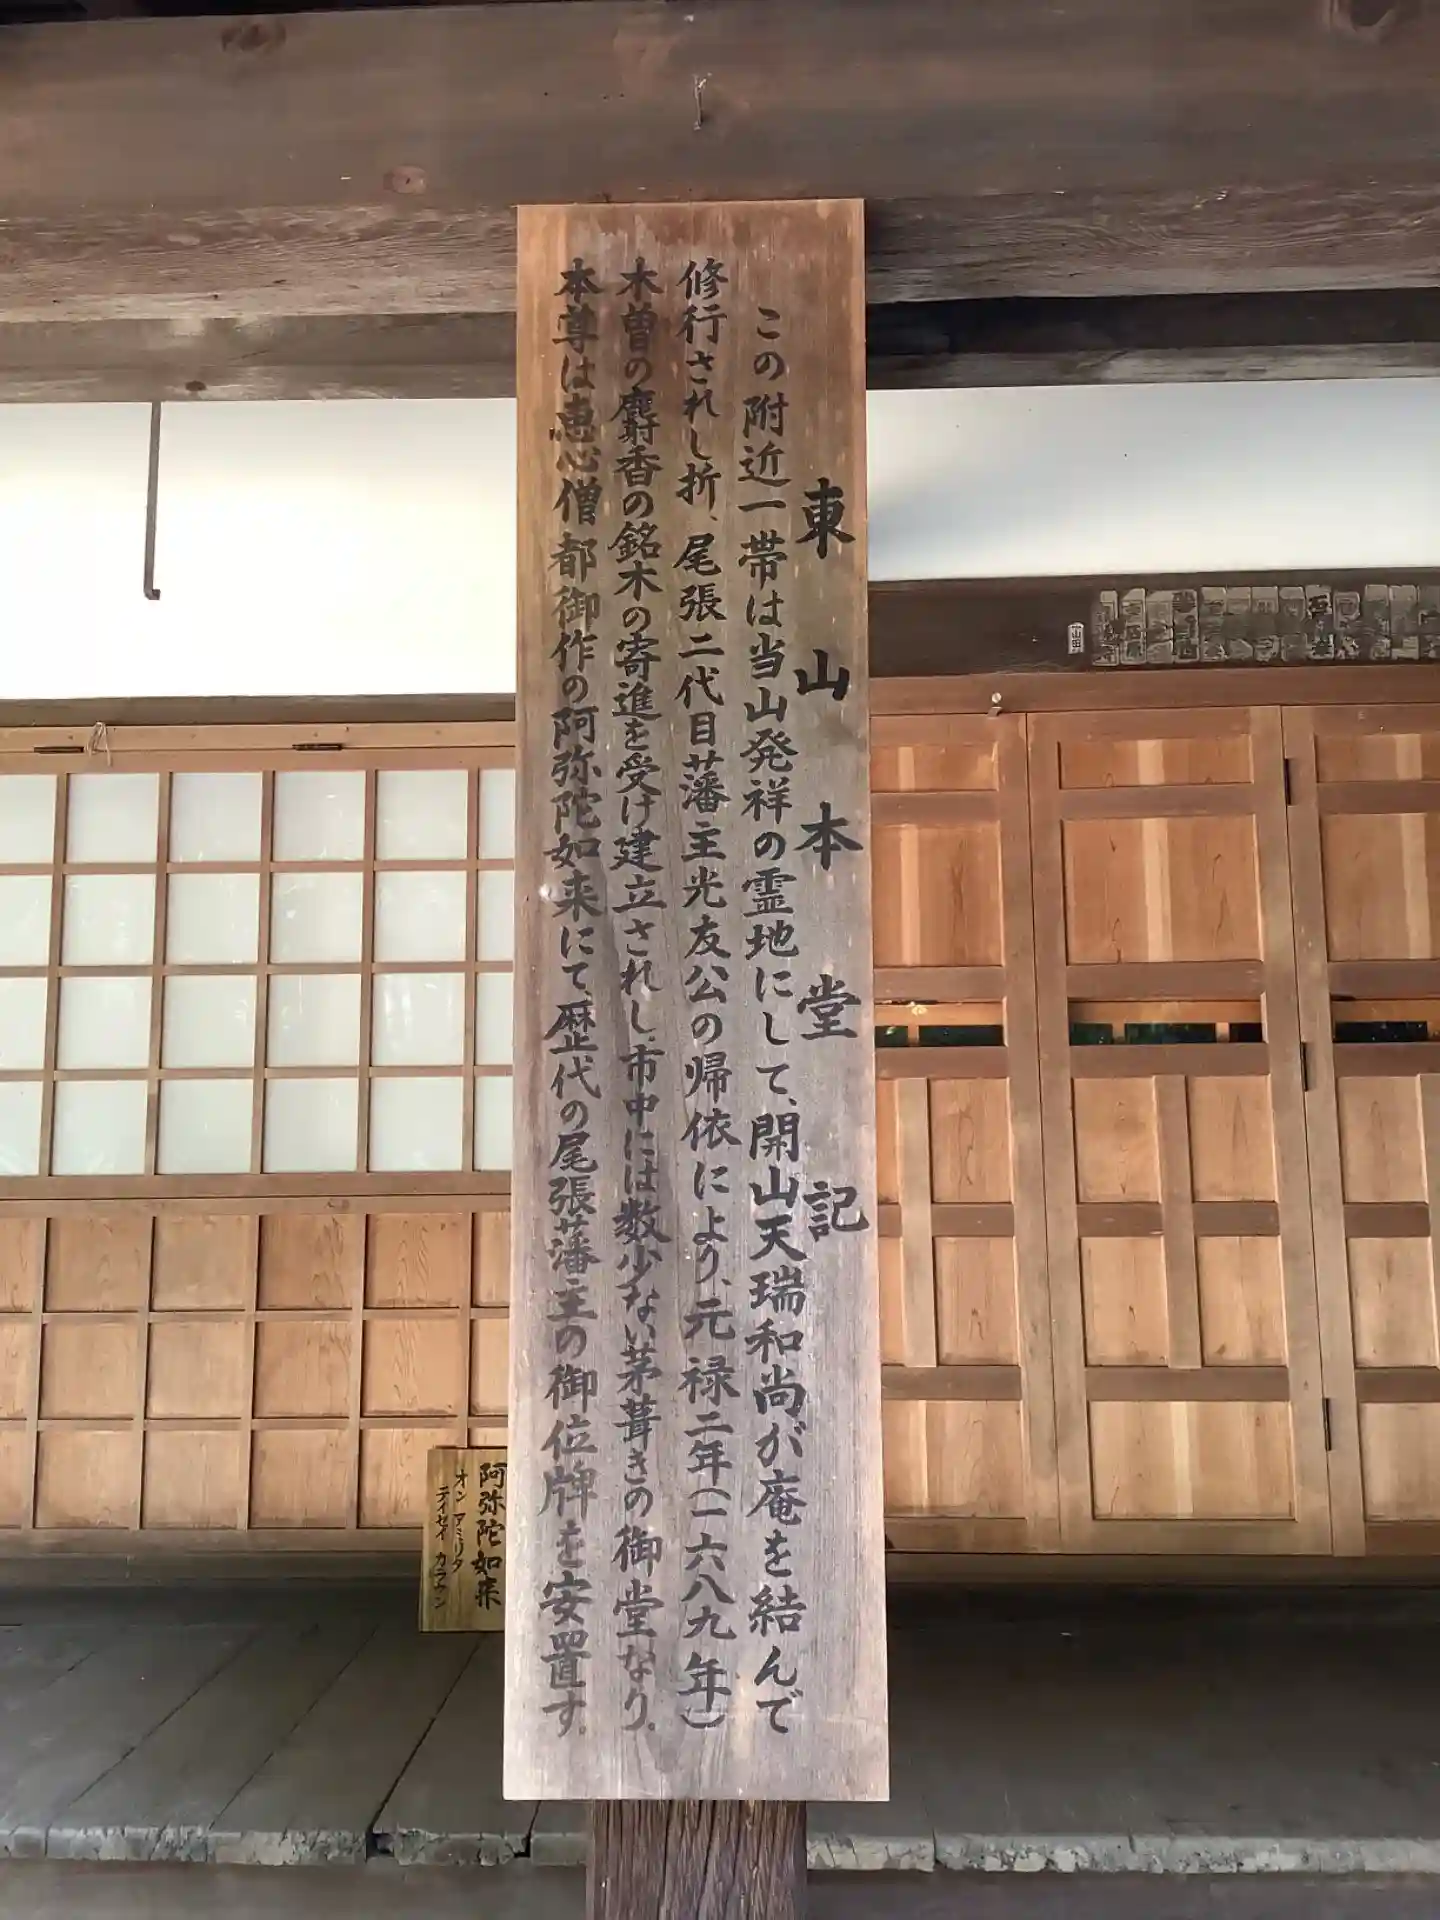 東山本堂記
この附近一帯は当山発祥の霊地にして、開山天瑞和尚が庵を結んで
修行されし折、尾張二代目藩主光友公の帰依により、元禄二年(一六八九年)
木曽の麝香の銘木の寄進を受け建立されし、市中には数少ない茅葺きの御堂なり。
本尊は恵心僧都御作の阿弥陀如来にて、歴代の尾張藩主の御位牌を安置す。
阿弥陀如来
オン アミリタ
テイセイ カラウン
山田